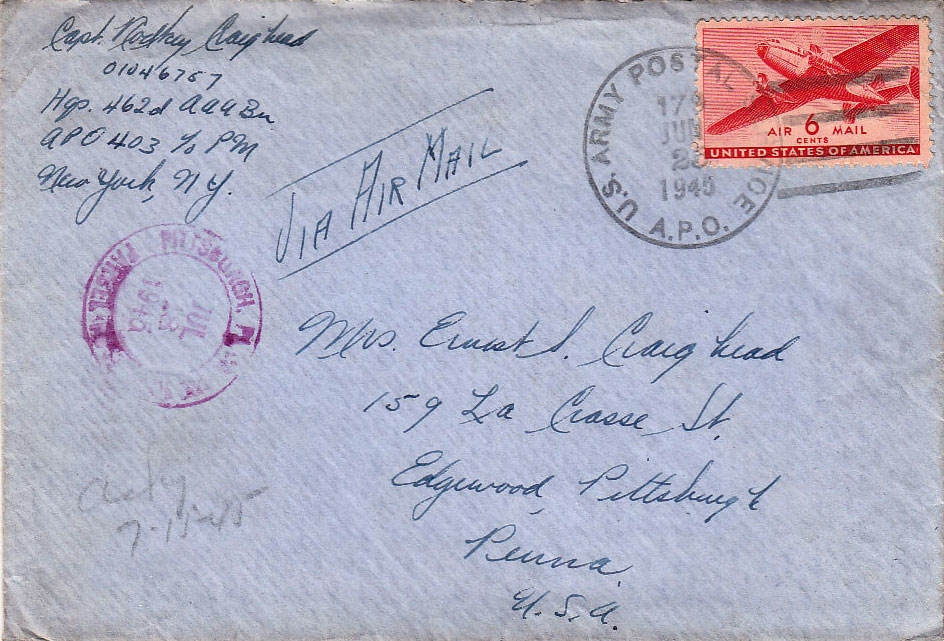 Capt. Rodkey Craighead
01046757
Hqs. 462d AAA Bn
APO 403 % PM
New York, N.Y.
VIA AIR MAIL
U.S. ARMY POSTAL
A.P.O.
JUN
1945
AIR 6 MAIL
CENTS
UNITED STATES OF AMERICA
PITTSBURGH,
JUL
1945
Mrs. Ernest S. Craighead
159 La Crosse St.
Edgewood, Pittsburgh
Penna.
U.S.A.